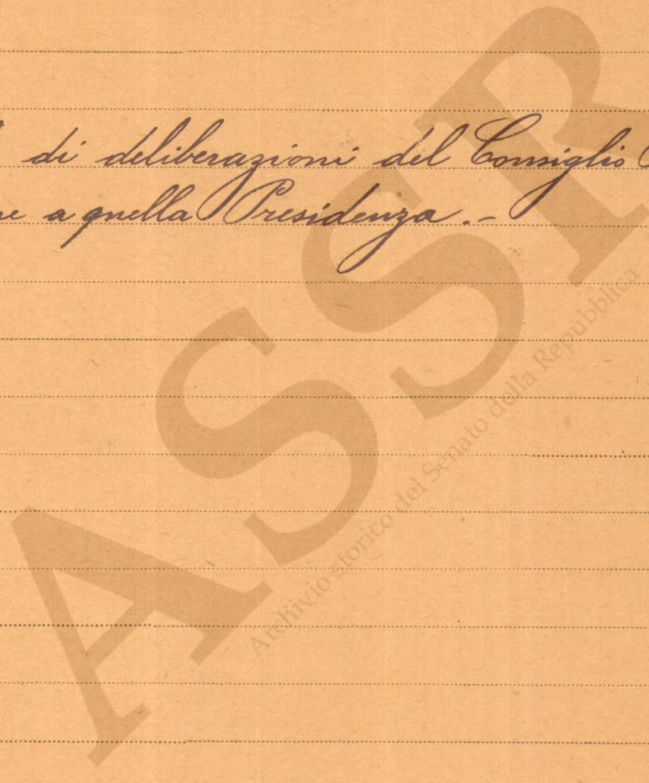 di deliberazioni del Consiglio
a quella Presidenza.-
ASSR
Archivio storico del Senato della Repubblica